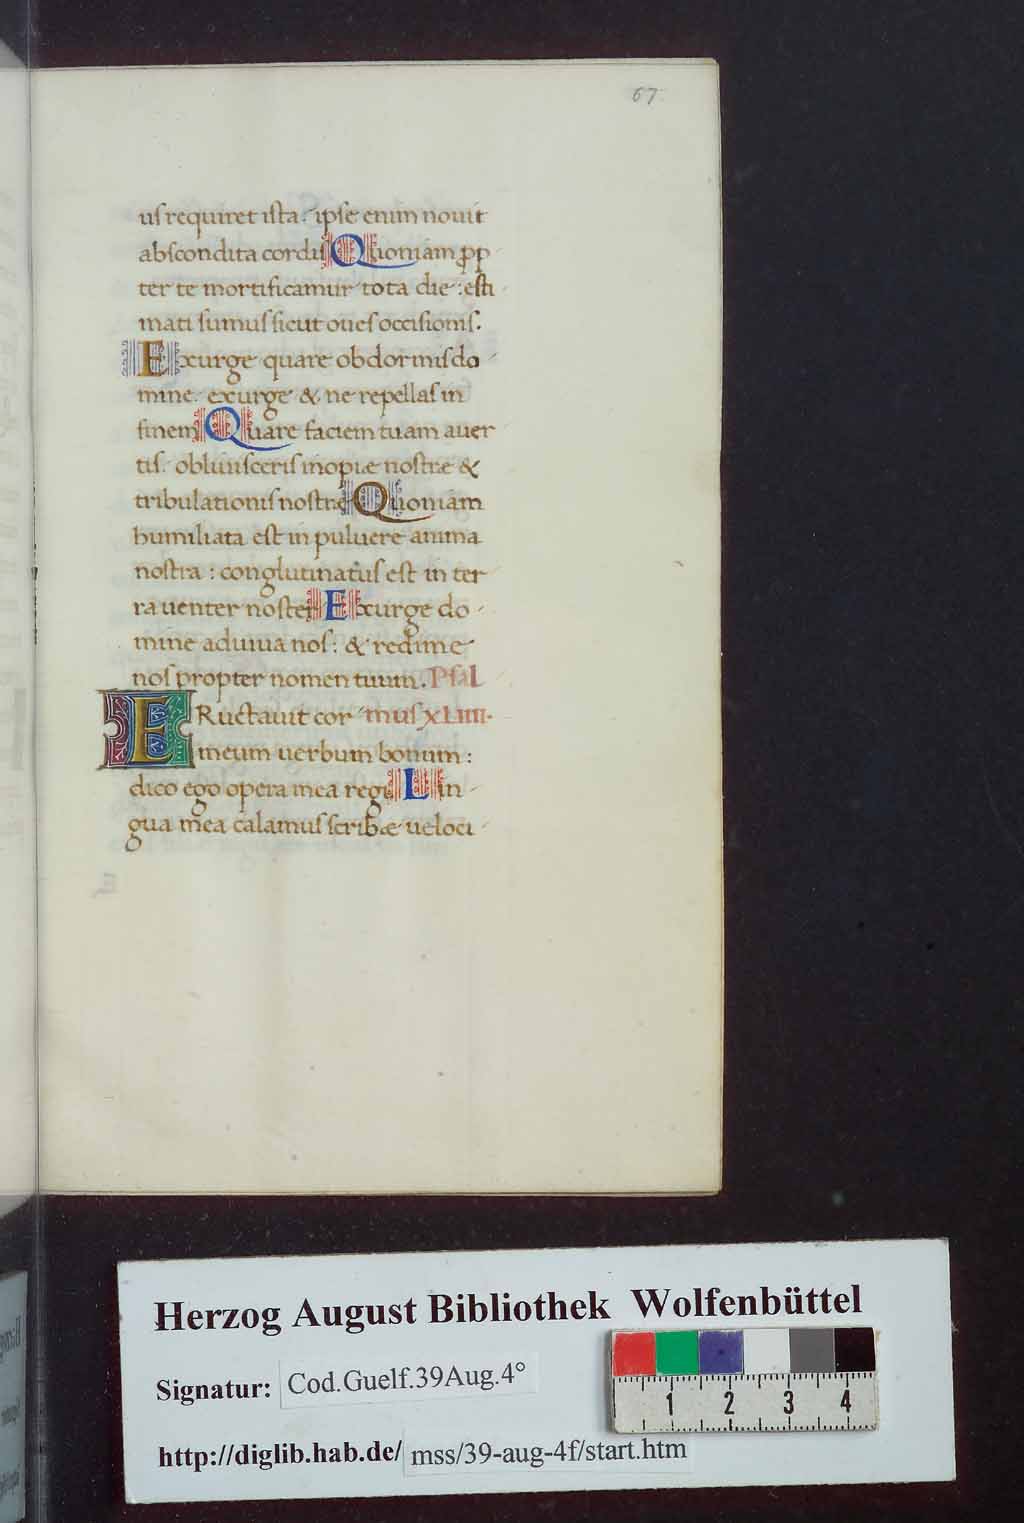 67.
us requiret ista. ipse enim novit
abscondita cordis Quoniam ꝓp
ter te mortificamur tota die: esti
mati sumus sicut oves occisionis.
Exurge quare obdormis do
mine. exurge & ne repellas in
finem Quare faciem tuam aver
tis. oblivisceris inopiæ nostræ &
tribulationis nostræ Quoniam
humiliata est in pulvere anima
nostra: conglutinatus est in ter
ra venter noster Exurge do
mine adiuva nos: & redime
nos propter nomen tuum. Psal
ERuctavit cor mus XLIIII.
meum verbum bonum:
dico ego opera mea regi Lin
gua mea calamus scribæ veloci
Herzog August Bibliothek Wolfenbüttel
Signatur: Cod.Guelf.39Aug.4°
http://diglib.hab.de/ mss/39-aug-4f/start.htm
1 2 3 4